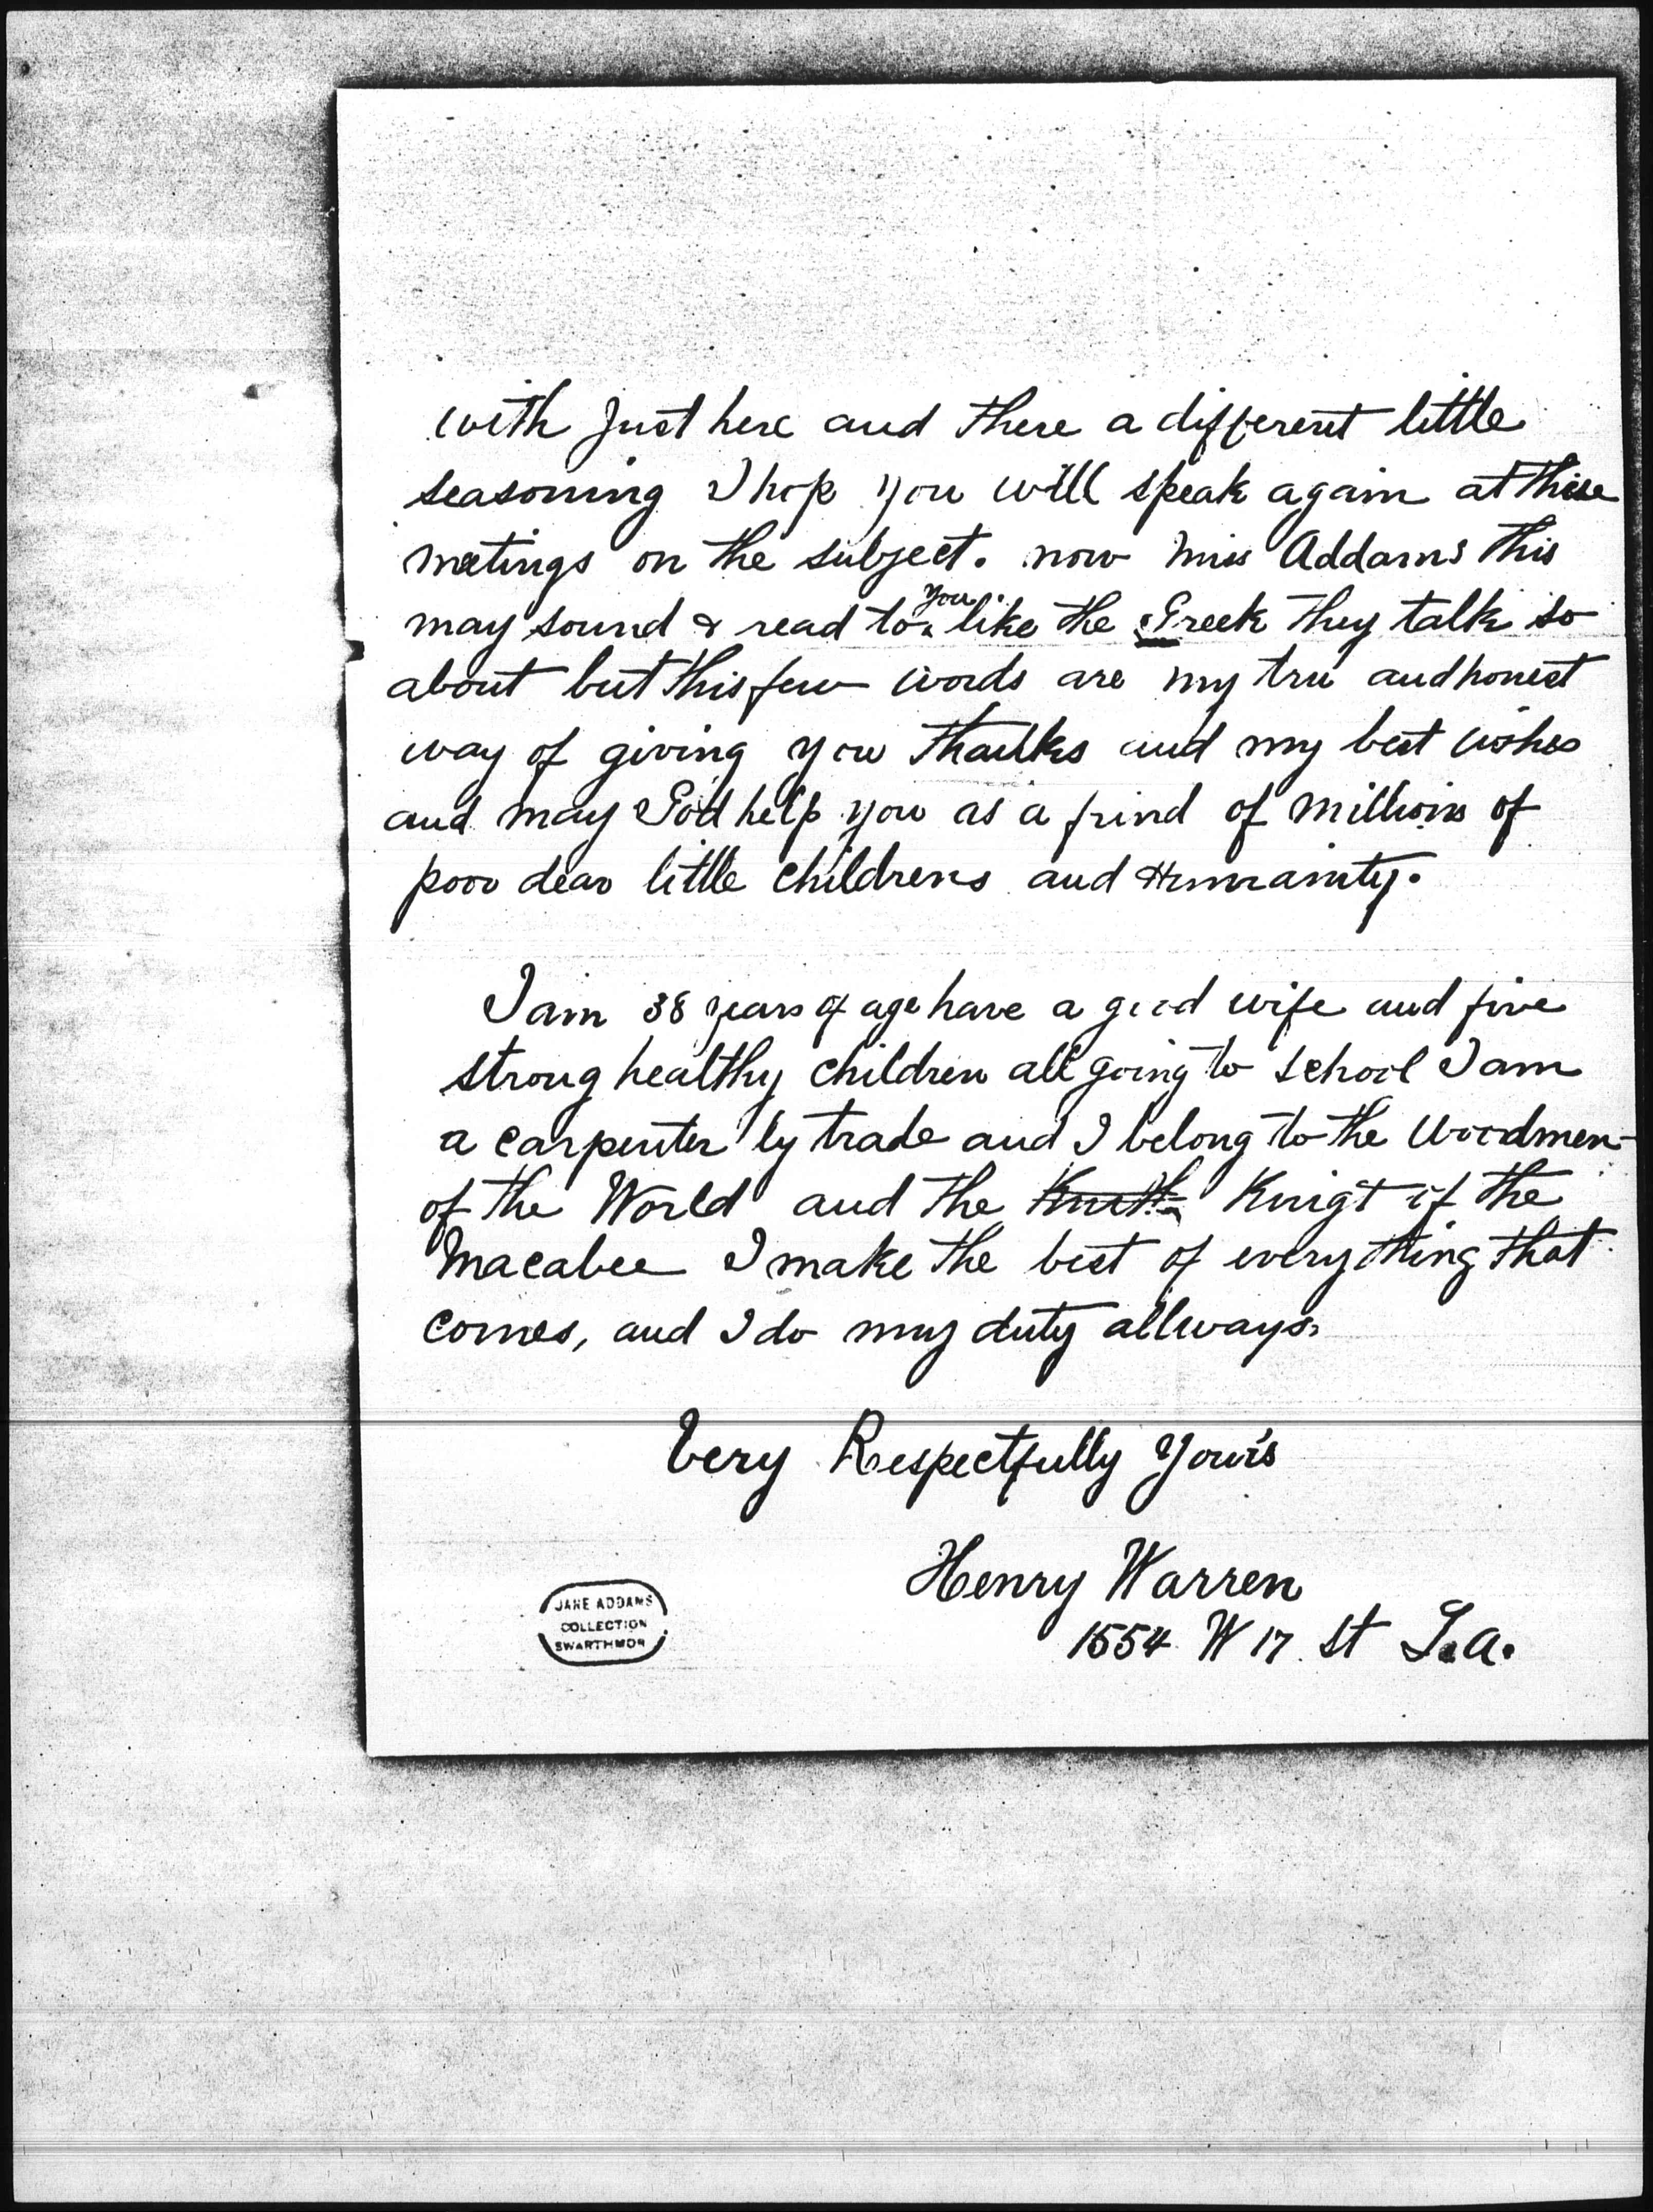 with just here and there a different little
seasoning I hop you will speak again at these
meetings on the subject. now miss Addams this
may sound & read to you like the Greek they talk so
about but this few words are my tru and honest
way of giving you thanks and my best wishes
and may God help you as a frind of millions of
poor dear little childrens and Humanity.
I am 38 years of age have a good wife and five
strong healthy children all going to school I am
a carpenter by trade and I belong to the Woodmen
of the World and the Knigt of the
Macabee I make the best of every thing that
comes, and I do my duty allways.
Very Respectfully Yours
Henry Warren
1554 W 17 St L.A.
JANE ADDAMS
COLLECTION
SWARTHMOR